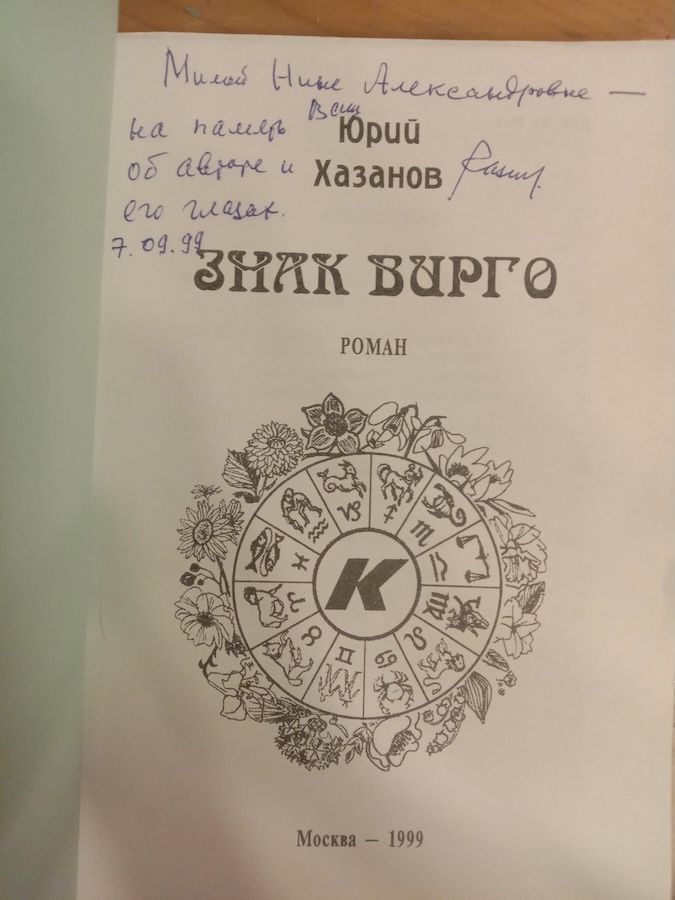 Милой Нине Александровне —
на память Ваш
об авторе и
его глазах.
7.09.99
Юрий
Хазанов
ЗНАК ВИРГО
РОМАН
К
Москва — 1999